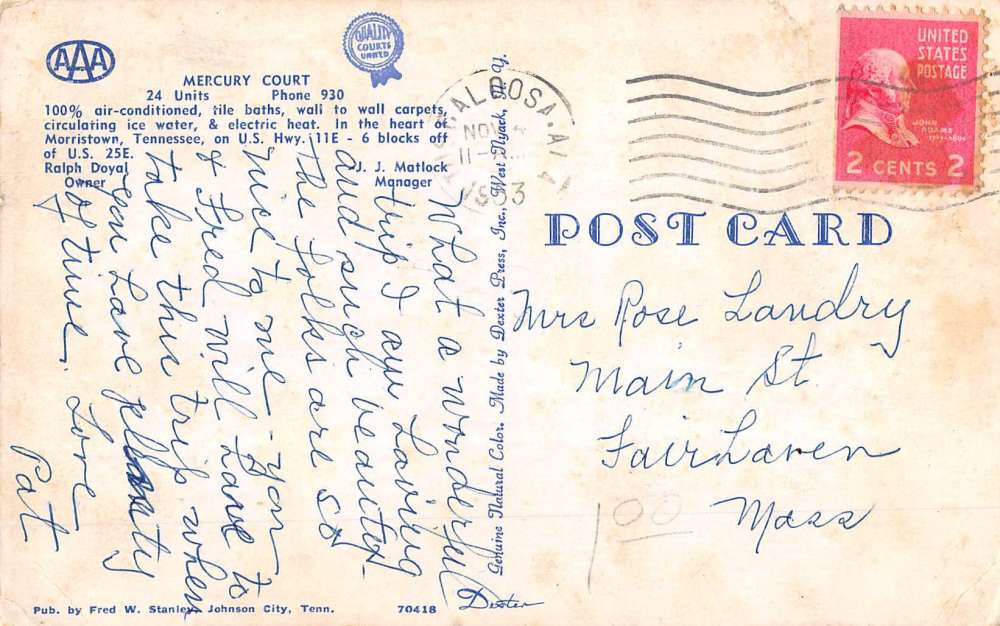 AAA
QUALITY
COURTS
UNITED
MERCURY COURT
24 Units Phone 930
100% air-conditioned, tile baths, wall to wall carpets,
circulating ice water, & electric heat. In the heart of
Morristown, Tennessee, on U.S. Hwy. 11E - 6 blocks off
of U.S. 25E.
Ralph Doyal J. J. Matlock
Owner Manager
What a wonderful
trip I am having
and such beauty.
The folks are so
nice to me - you
& Fred will have to
take this trip when
you have plenty
of time. Love
Pat
Pub. by Fred W. Stanley, Johnson City, Tenn. 70418 Dexter
Genuine Natural Color. Made by Dexter Press, Inc., West Nyack, N. Y.
ALOOSA. ALA
NOV
11
1953
UNITED
STATES
POSTAGE
JOHN
ADAMS
1797-1801
2 CENTS 2
POST CARD
Mrs Rose Landry
Main St.
Fairhaven
Mass
100